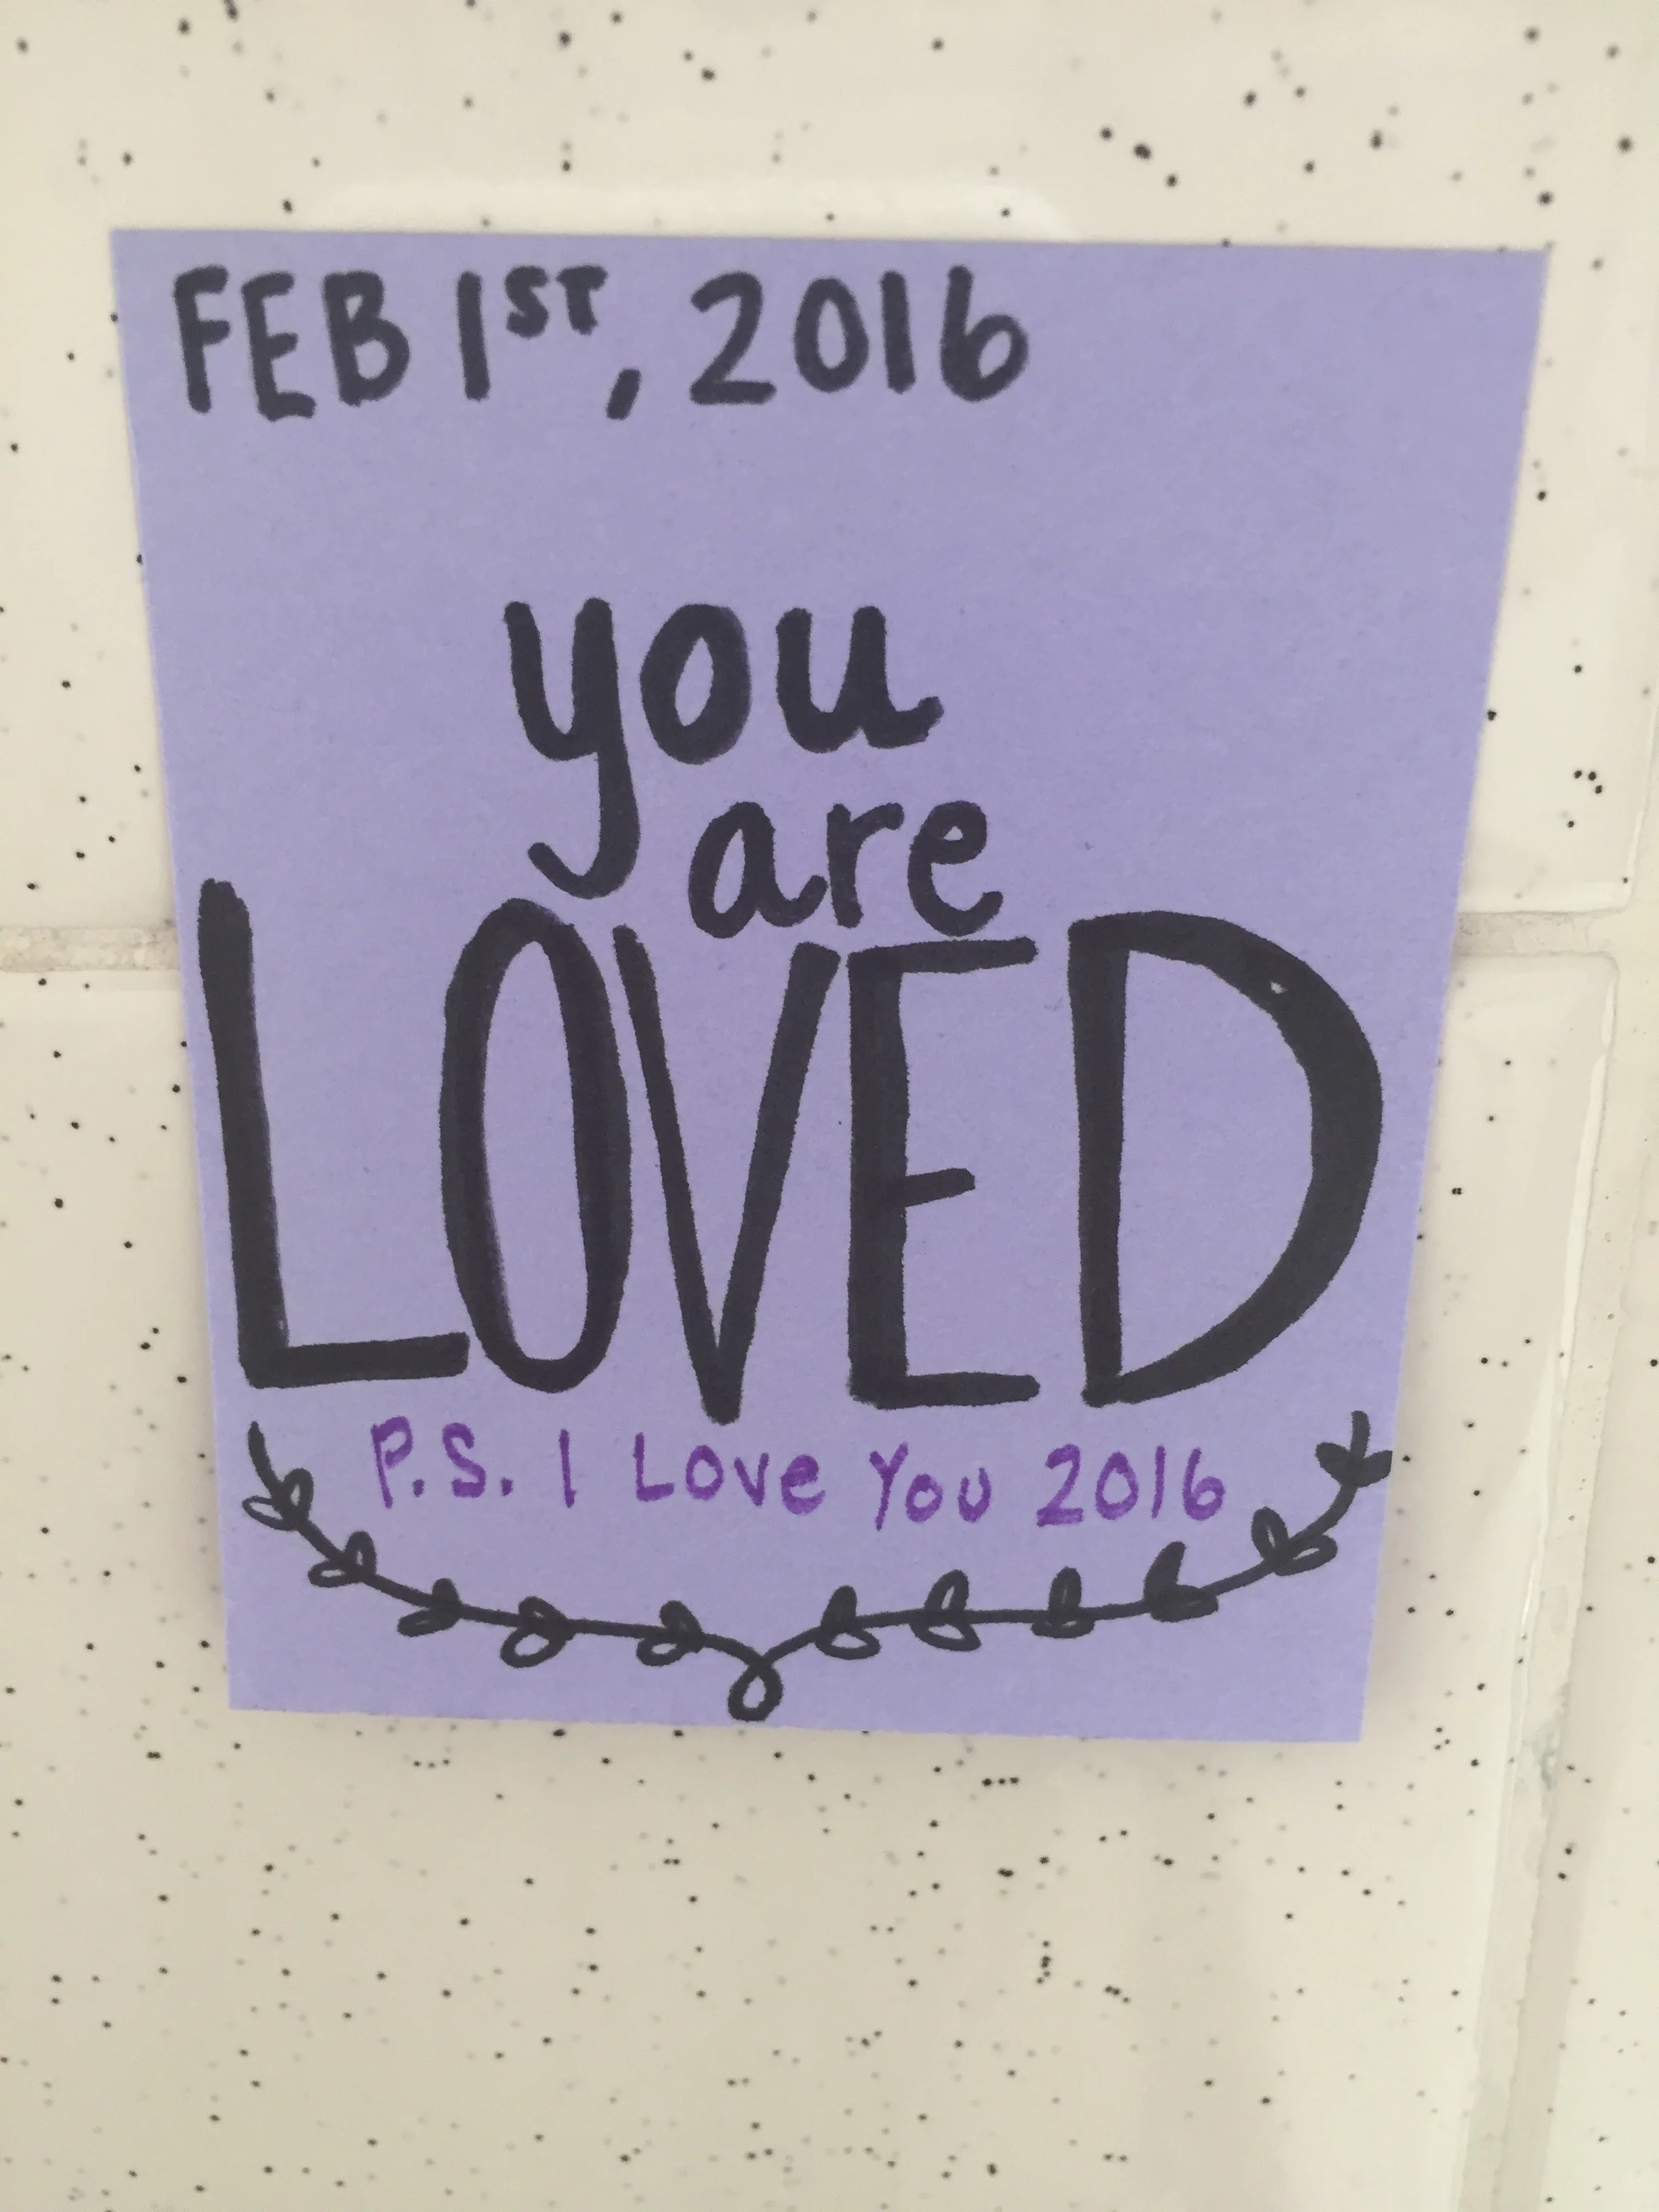 FEB 1ST, 2016
you
are
LOVED
P.S. I Love You 2016